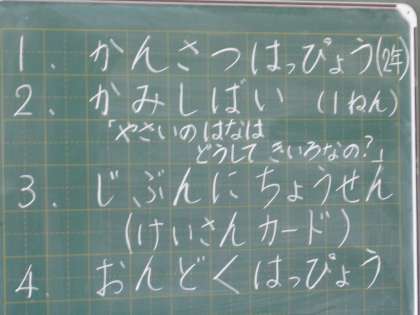 1. かんさつはっぴょう(2年)
2. かみしばい (1ねん)
「やさいのはなは
どうして きいろなの?」
3. じぶんにちょうせん
(けいさんカード)
4. おんどくはっぴょう